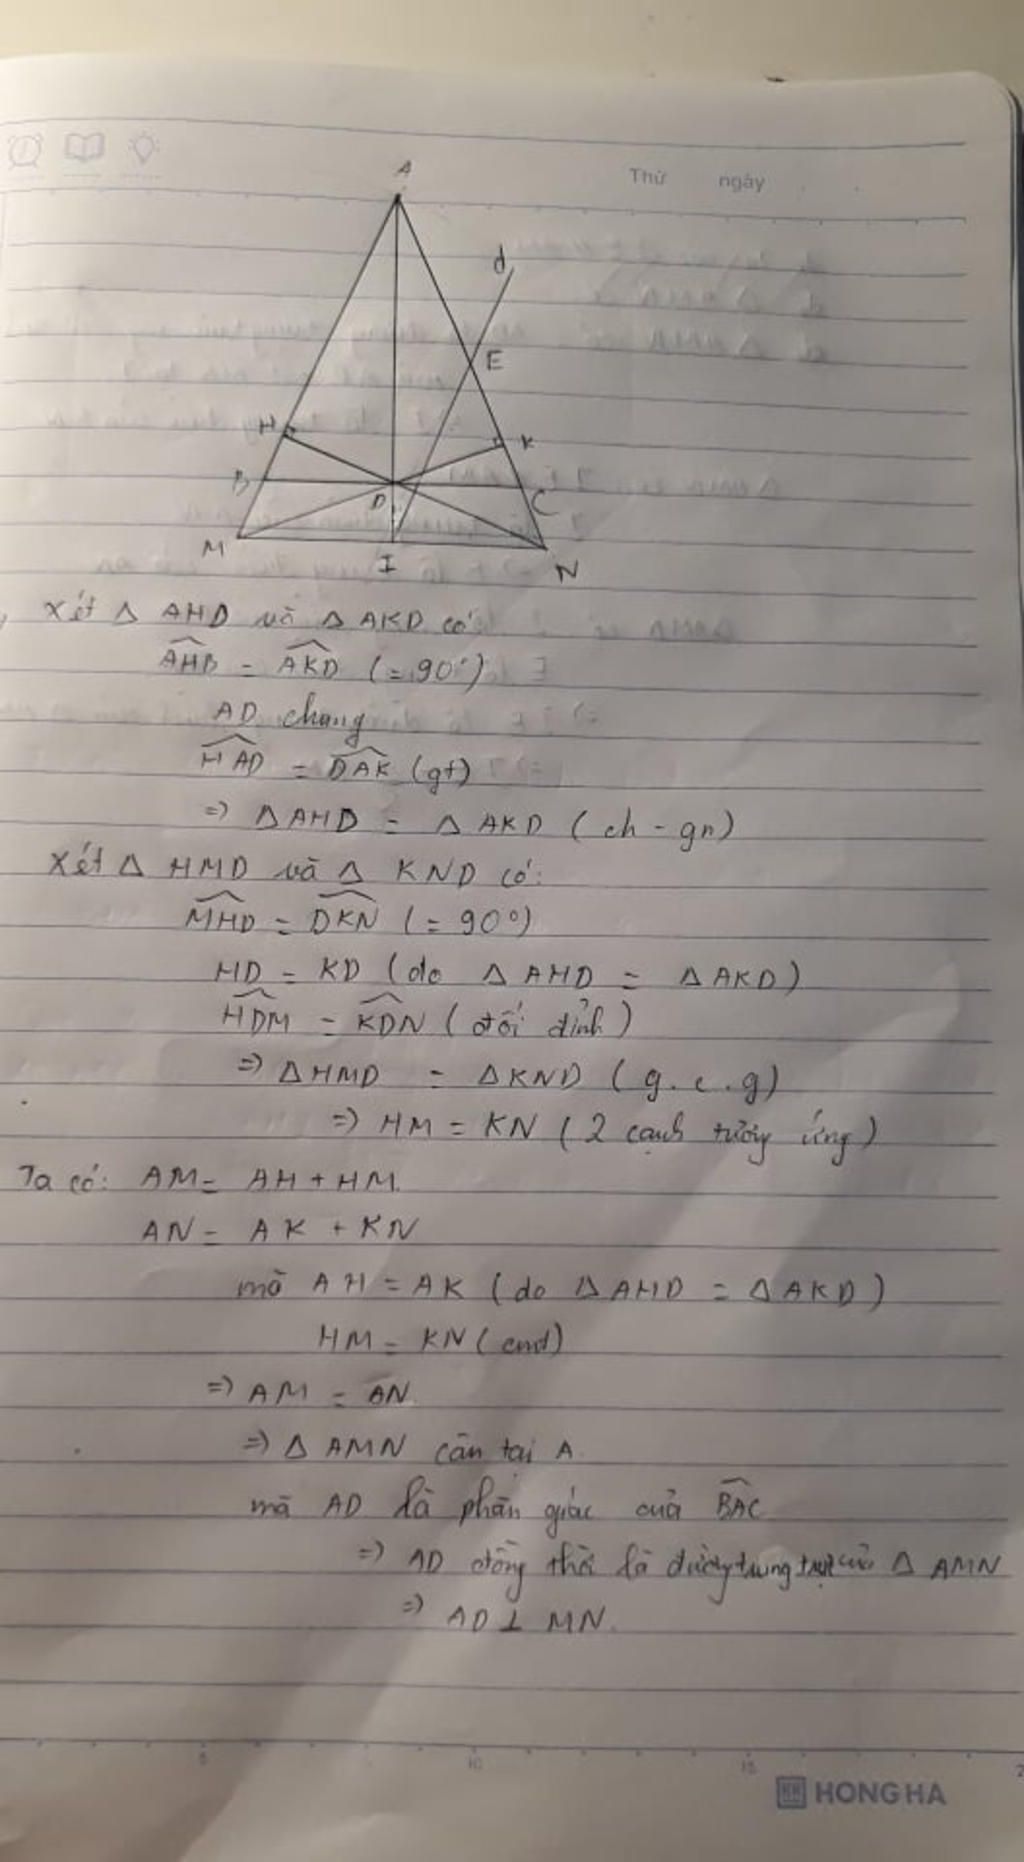 Thứ ngày
A
d
E
H
K
B
D
C
M
I
N
Xét Δ AHD và Δ AKD có
AHB = AKD (= 90°)
AD chung
HAD = DAK (gt)
=> ΔAHD = Δ AKD (ch - gn)
Xét Δ HMD và Δ KND có:
MHD = DKN (= 90°)
HD = KD (do Δ AHD = Δ AKD)
HDM = KDN (đối đỉnh)
=> ΔHMD = ΔKND (g.c.g)
=> HM = KN (2 cạnh tương ứng)
Ta có: AM = AH + HM.
AN = AK + KN
mà AH = AK (do Δ AHD = Δ AKD)
HM = KN (cmt)
=> AM = AN.
=> Δ AMN cân tại A.
mà AD là phân giác của BAC
=> AD đồng thời là đường trung trực của Δ AMN
=> AD ⊥ MN.
5 10 15 2
HH HONG HA